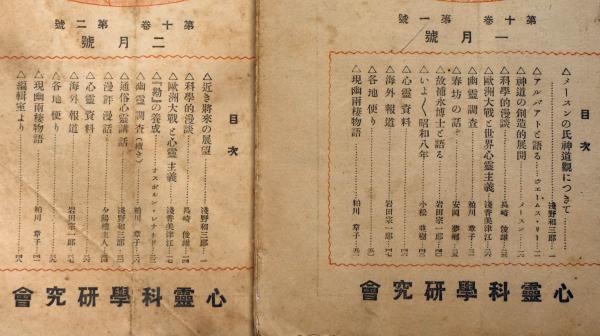 第十巻 第一號
一月號
目次
△メースンの氏神道觀につきて……淺野和三郎…一
△アルバアトと語る……ウエームス・リー…
△神道の創造的展開……メースン…
△科學的漫談……長崎俊雄…
△歐洲大戰と世界心靈主義……淺香美津江…
△幽靈調査……粕川章子…
△春坊の話……安岡夢郷…
△故補永博士と語る……岩田宗一郎…
△いよ〱昭和八年……小松並樹…
△心靈資料……
△海外報道……岩田宗一郎…
△各地便り……
△現幽兩棲物語……粕川章子…
心靈科學研究會
第十巻 第二號
二月號
目次
△近き將來の展望……淺野和三郎…一
△科學的漫談……長崎俊雄…
△歐洲大戰と心靈主義……淺香美津江…
△『勘』の養成……オスボルン・レナード…
△幽靈調査(續き)……粕川章子…
△通俗心靈講話……淺野和三郎…
△漫評漫話……夕陽樓主人…
△心靈資料……
△海外報道……岩田宗一郎…
△各地便り……
△現幽兩棲物語……粕川章子…
△編輯室より……
心靈科學研究會